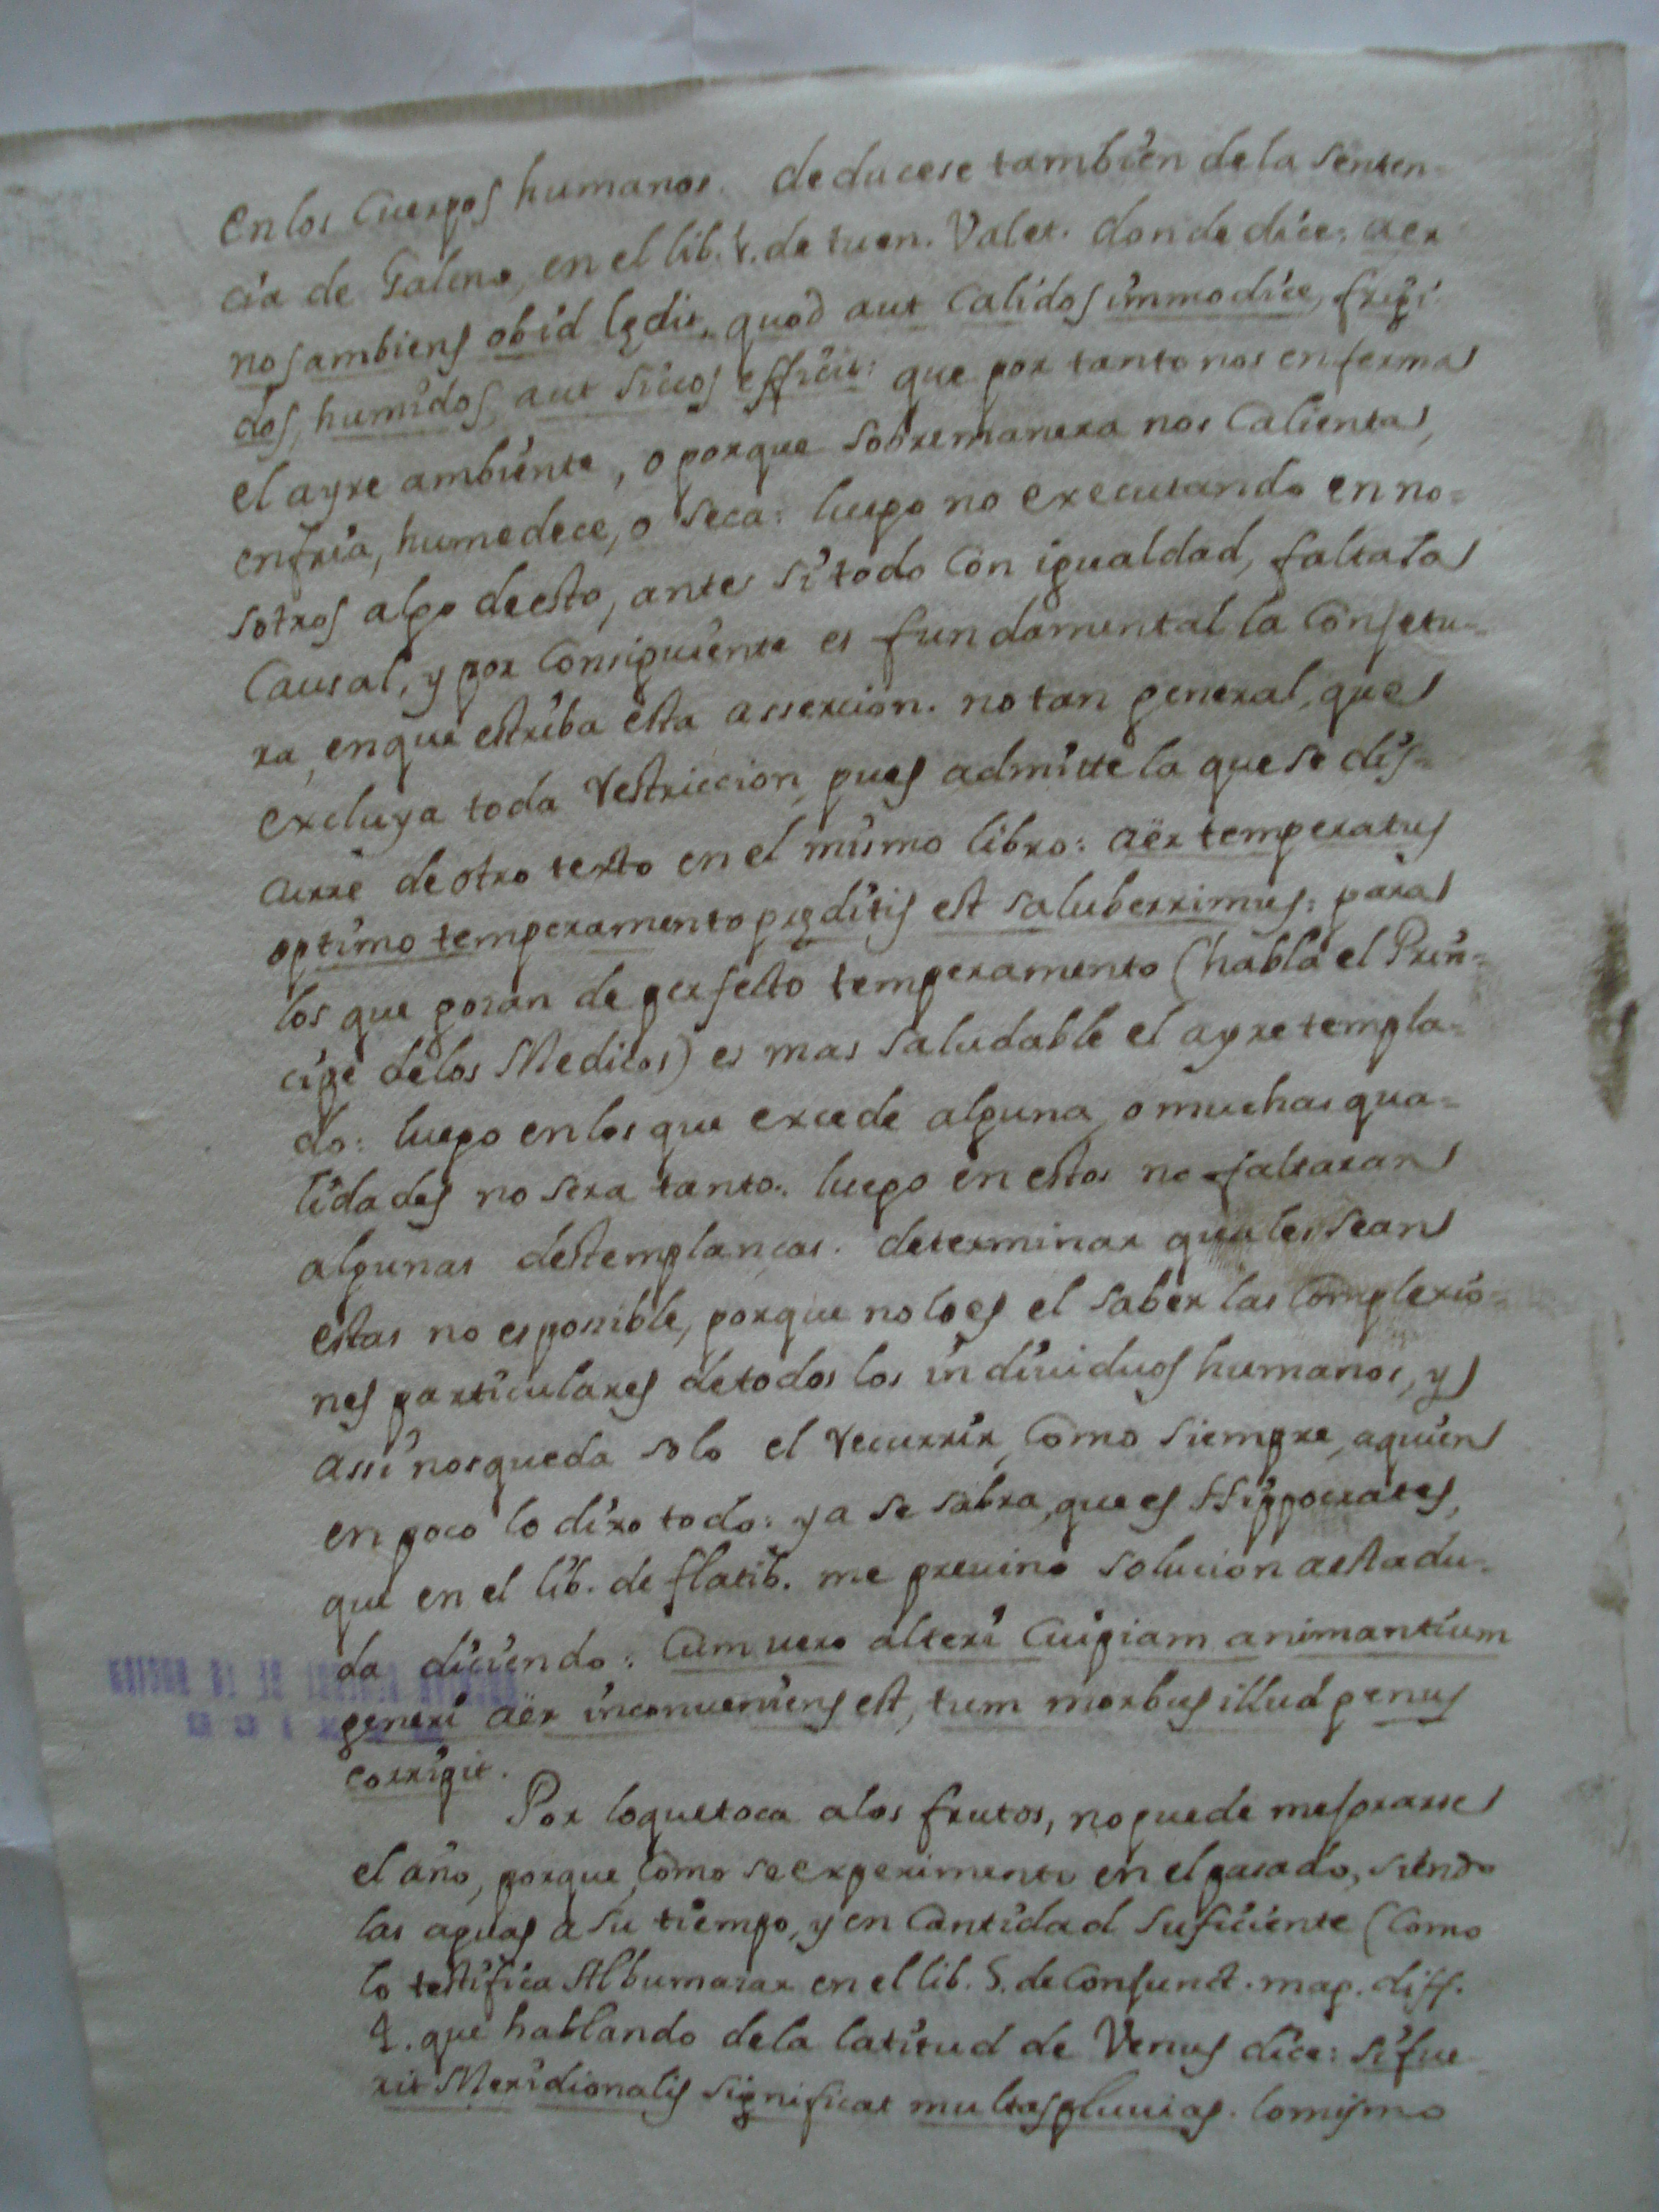 en los Cuerpos humanos. deducese tambien de la senten-
cia de Galeno, en el lib. 1. de tuen. Valet. donde dice: aer
nos ambiens ob id lędit, quod aut calidos immodice, frigi
dos, humidos, aut siccos efficit: que por tanto nos enferma
el ayre ambiente, o porque sobremanera nos calienta,
enfria, humedece, o seca: luego no executando en no=
sotros algo de esto, antes si todo con igualdad, falta la
Causal, y por Consiguiente es fundamental la Conjetu=
ra, en que estriba esta assercion. no tan general, que
excluya toda restriccion, pues admitte la que se dis=
curre de otro texto en el mismo libro: aër temperatus
optimo temperamento pręditis est saluberrimus: para
los que gozan de perfecto temperamento (habla el Prin=
cipe de los Medicos) es mas saludable el ayre templa=
do: luego en los que excede alguna, o muchas qua=
lidades no sera tanto. luego en estos no faltaran
algunas destemplanças. determinar quales sean
estas no es possible, porque no lo es el saber las Complexio=
nes particulares de todos los individuos humanos, y
assi nos queda solo el recurrir, Como siempre, a quien
en poco lo dixo todo: ya se sabra, que es Hippocrates,
que en el lib. de flatib. me previno solucion a esta du=
da diciendo: Cum uero alteri Cuipiam animantium
generi aër inconueniens est, tum morbus illud genus
corrigit.
Por lo que toca a los frutos, no puede mejorarse
el año, porque, Como se experimento en el pasado, siendo
las aguas a su tiempo, y en Cantidad suficiente (Como
lo testifica Albumazar en el lib. 5. de Conjunct. mag. diff.
4. que hablando de la latitud de Venus dice: si fue
rit Meridionalis significat multas pluuias. lo mismo